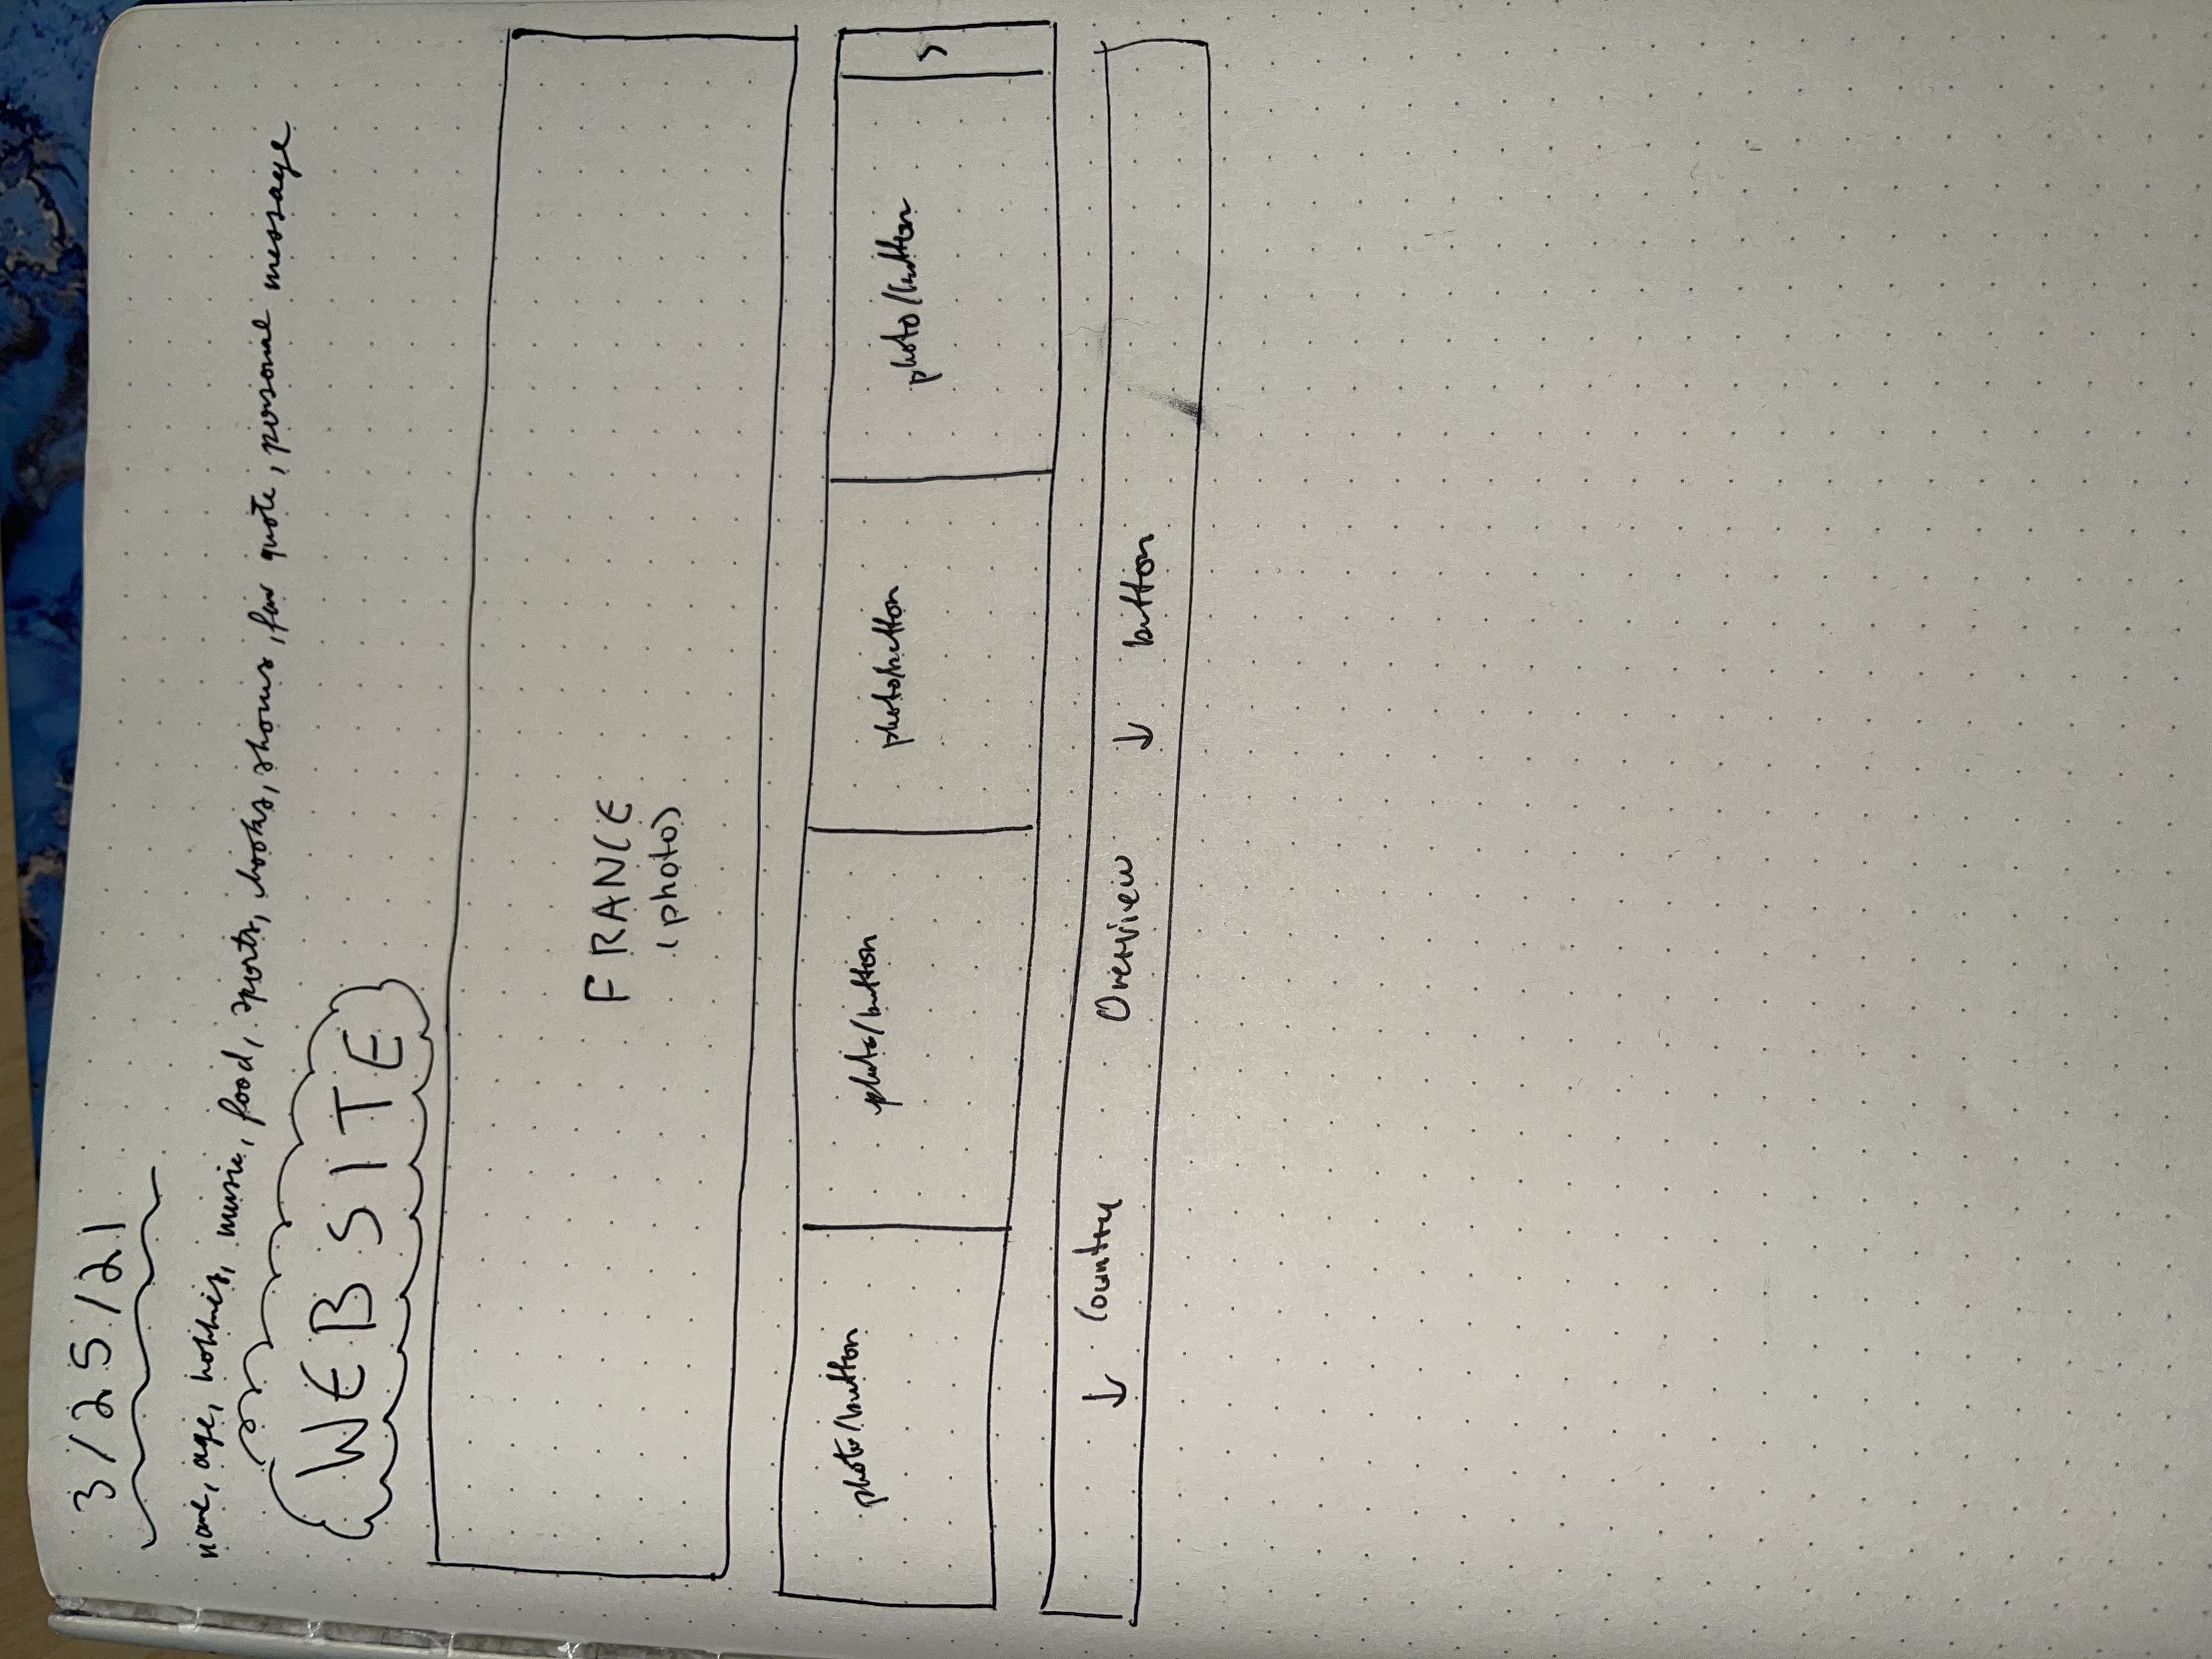 3/25/21
name, age, hobbies, music, food, sports, books, shows, fav quote, personal message
WEBSITE
FRANCE
(photo)
photo/button photo/button photo/button photo/button >
↓ Country Overview ↓ button